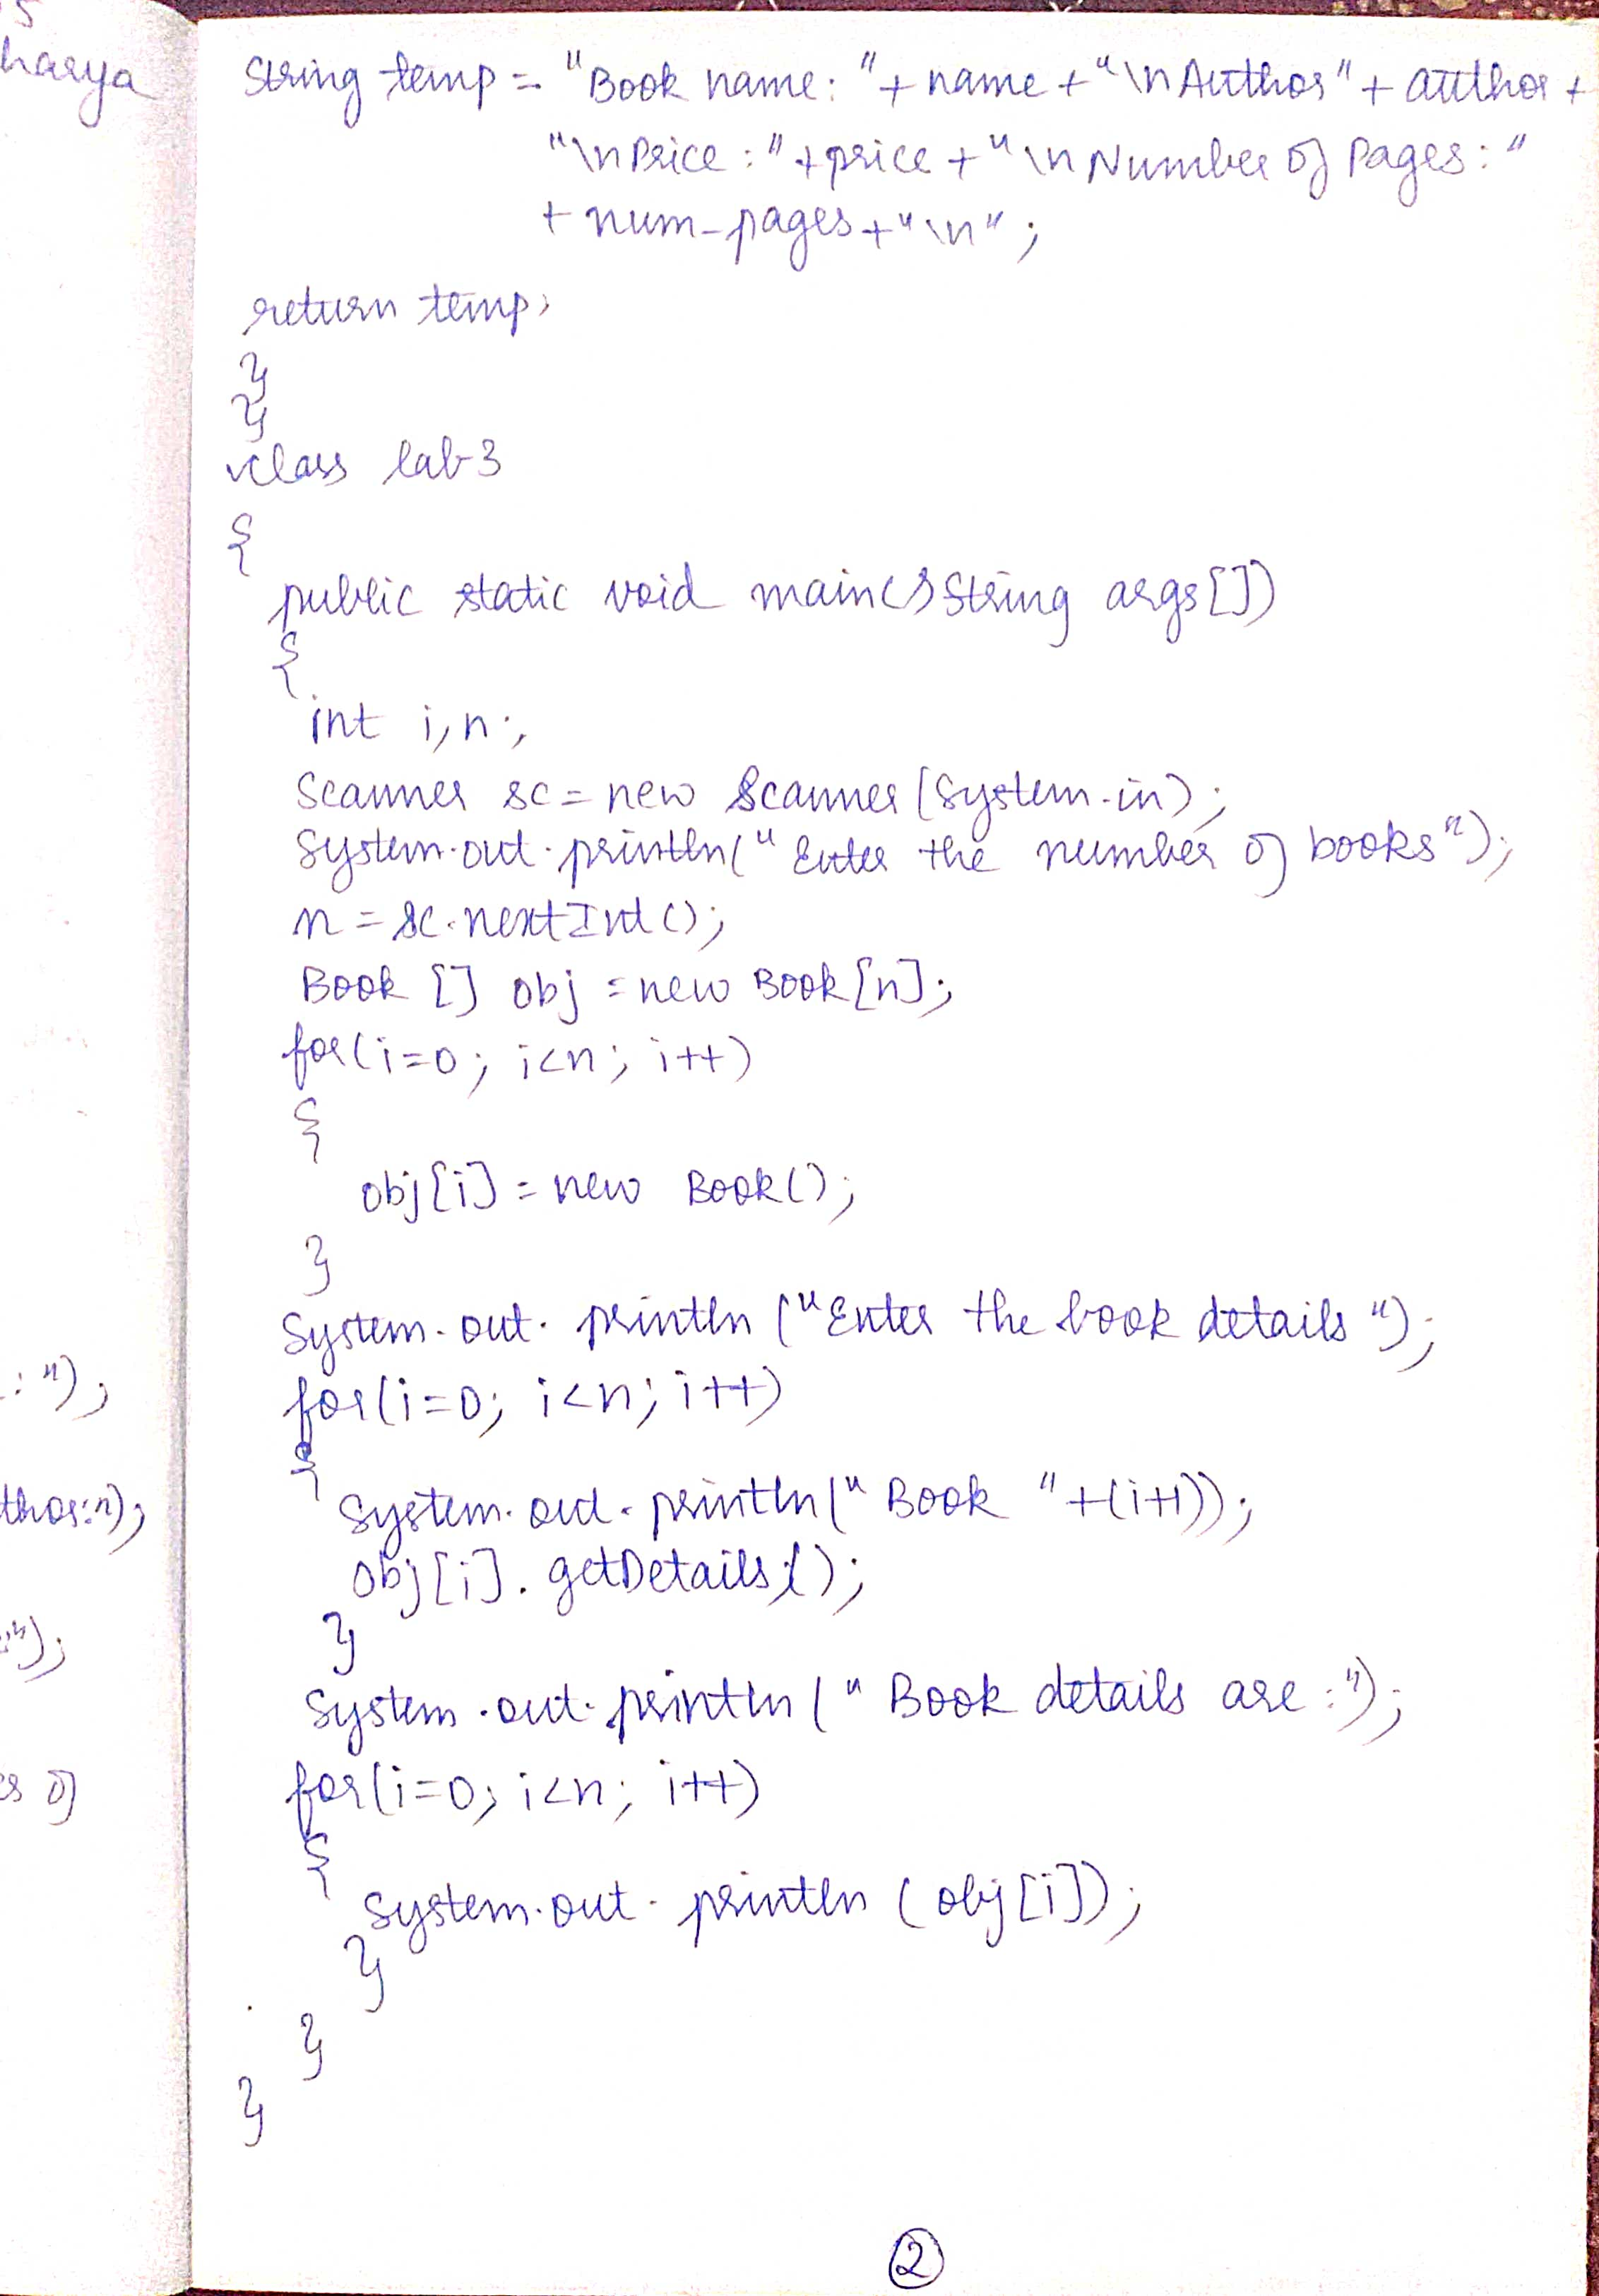 harya
: ");
thor:");
:");
es of
String temp = "Book name: " + name + "\n Author" + author +
"\n Price :" + price + "\n Number of Pages : "
+ num_pages + "\n" ;
return temp;
}
}
class lab3
{
public static void main(String args[])
{
int i, n;
Scanner sc = new Scanner (System.in);
System.out.println(" Enter the number of books");
n = sc.nextInt();
Book [] obj = new Book[n];
for(i=0; i<n; i++)
{
obj[i] = new Book();
}
System.out.println ("Enter the book details ");
for(i=0; i<n; i++)
{
System.out.println(" Book "+(i+1));
obj[i].getDetails();
}
System.out.println (" Book details are :");
for(i=0; i<n; i++)
{
System.out.println (obj[i]);
}
}
}
2